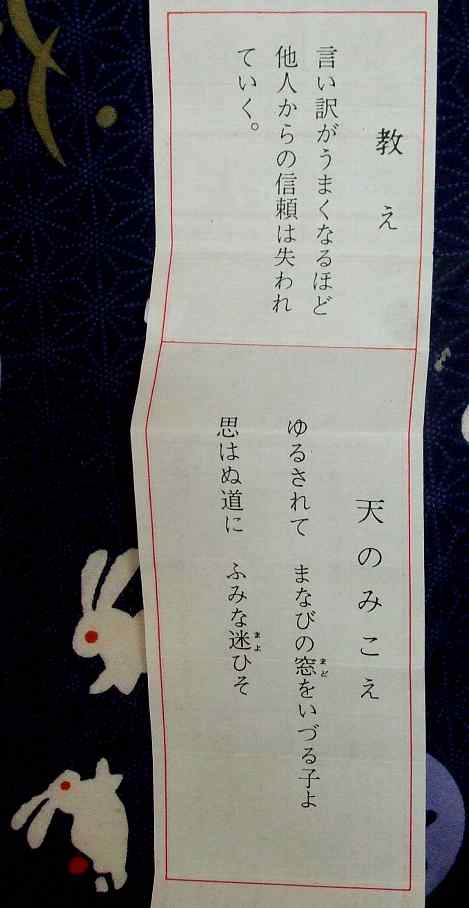 教え
言い訳がうまくなるほど
他人からの信頼は失われ
ていく。
天のみこえ
ゆるされて まなびの窓をいづる子よ
まど
思はぬ道に ふみな迷ひそ
まよ